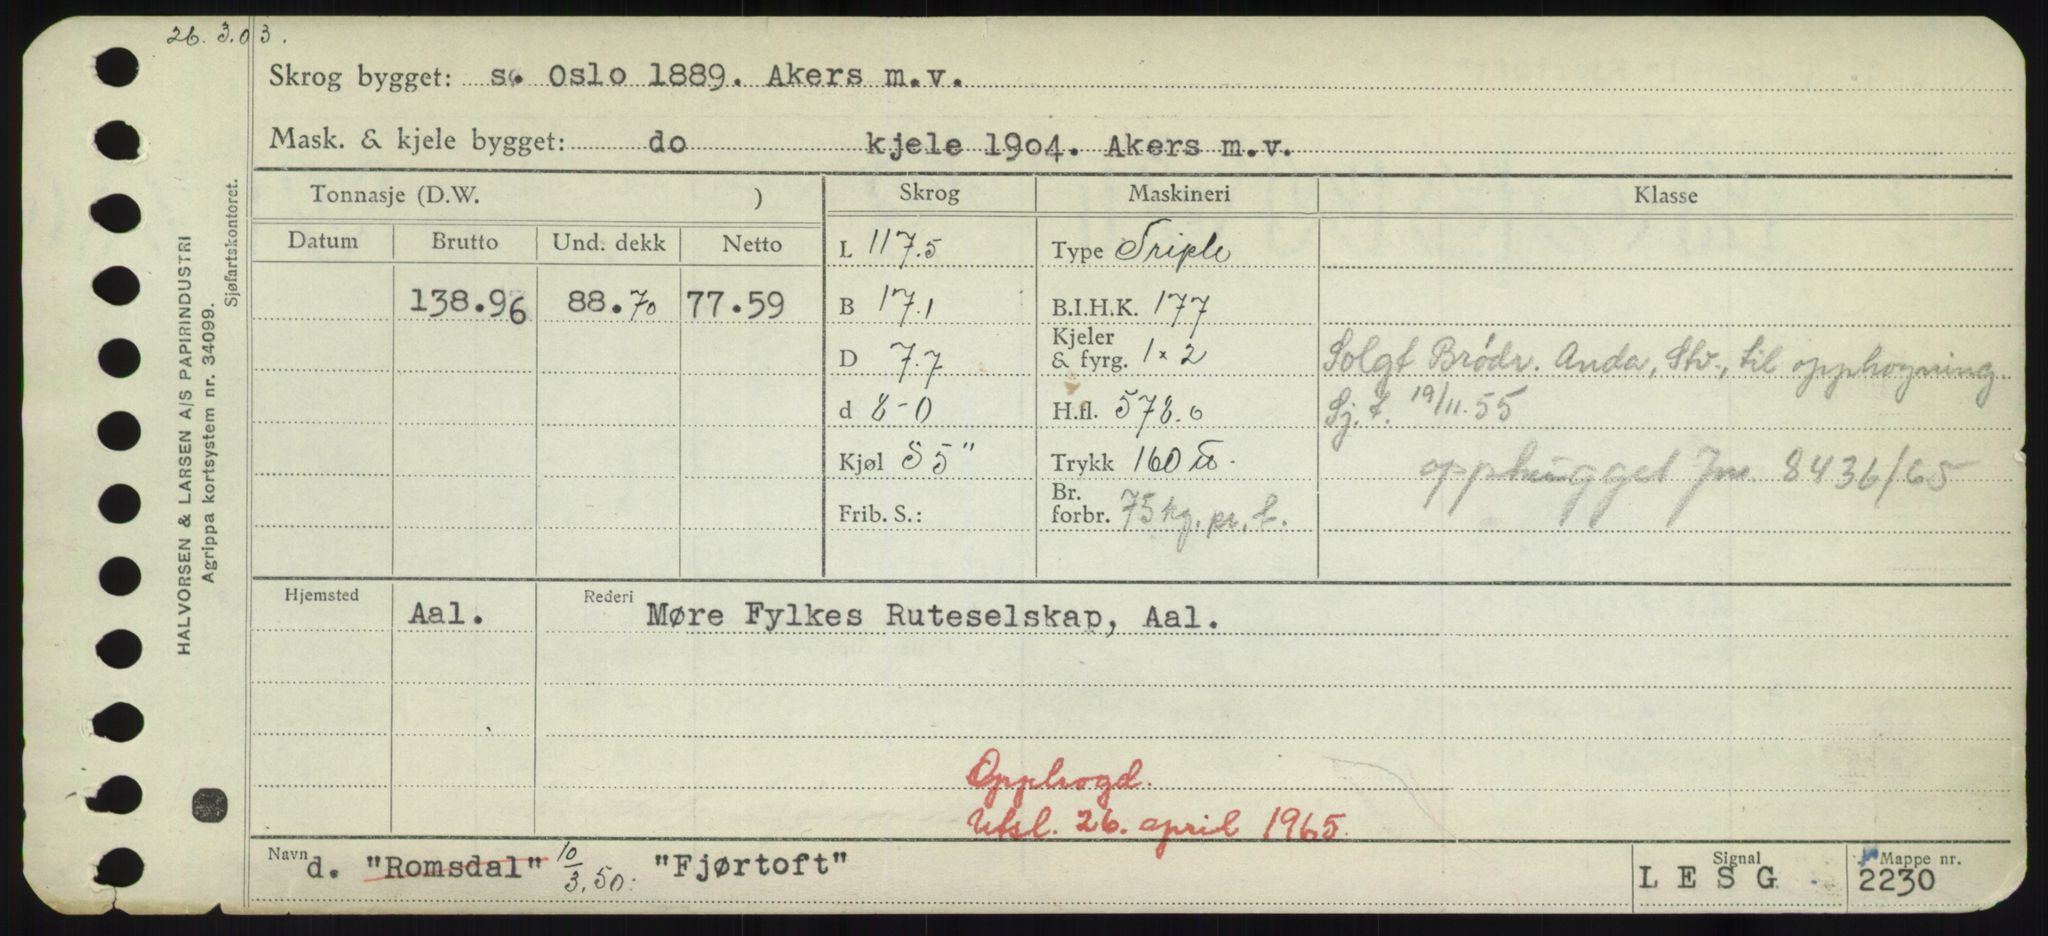 26.3.03.
Skrog bygget: s. Oslo 1889. Akers m.v.
Mask. & kjele bygget: do kjele 1904. Akers m.v.
Tonnasje (D.W. ) Skrog Maskineri Klasse
Datum Brutto Und. dekk Netto
L 117.5 Type Triple
138.96 88.70 77.59 B 17.1 B.I.H.K. 177
D 7.7 Kjeler & fyrg. 1 × 2 Solgt Brødr. Anda, Stv., til opphogning.
d 8-0 H.fl. 578.0 Sj.t. 19/11.55
Kjøl S 5" Trykk 160 opphugget Jnr. 8436/65
Frib. S.: Br. forbr. 75 kg. pr. t.
Hjemsted Aal. Rederi Møre Fylkes Ruteselskap, Aal.
Opphogd.
Utsl. 26. april 1965.
Navn d. "Romsdal" 10/3.50: "Fjørtoft" Signal L E S G Mappe nr. 2230
HALVORSEN & LARSEN A/S PAPIRINDUSTRI
Agrippa kortsystem nr. 34099.
Sjøfartskontoret.